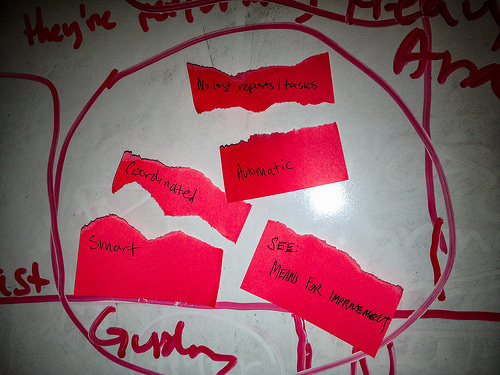 they're performing
No lost reports / tasks
Automatic
Coordinated
Smart
SEE:
MEANS FOR IMPROVEMENT
ist